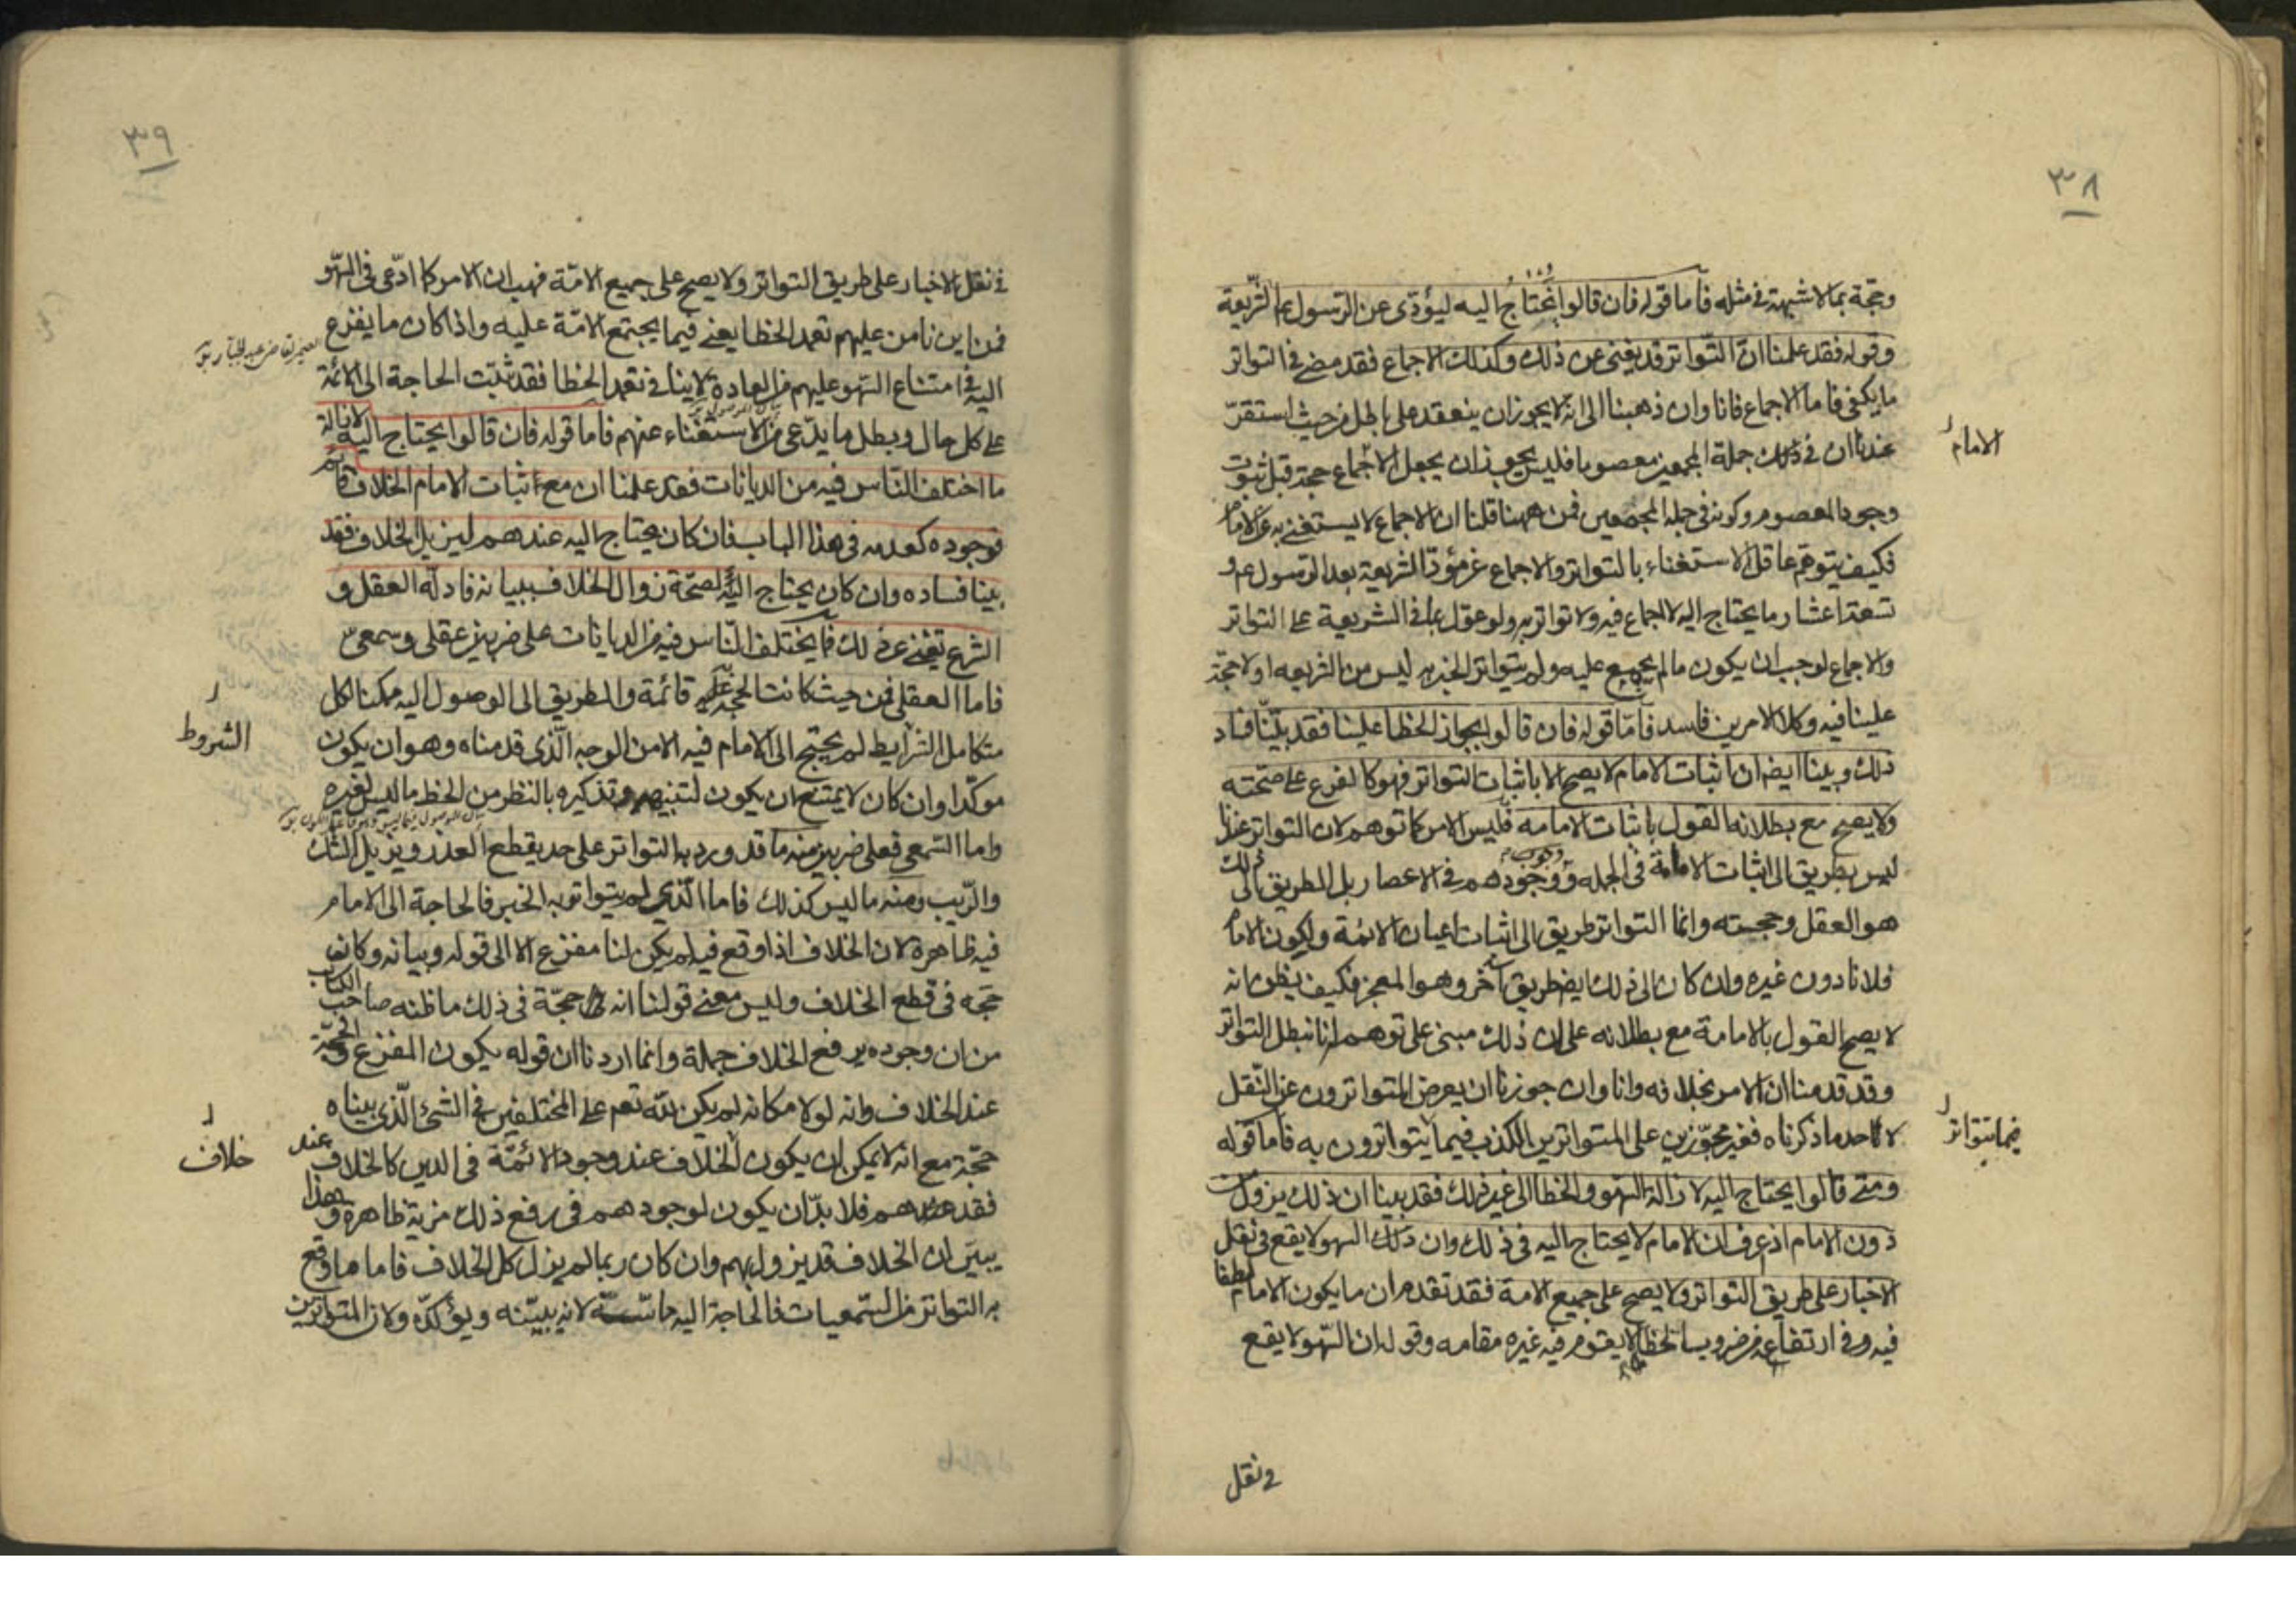 ٣٨
وحجة بما لا شبهة في مثله فاما قوله فان قالوا يحتاج اليه ليؤدى عن الرسول عم الشريعة
وقوله فقد علمنا ان التواتر قد يغنى عن ذلك وكذلك الاجماع فقد مضى في التواتر
ما يكفى فاما الاجماع فانا وان ذهبنا الى انه لا يجوز ان ينعقد على باطل من حيث استقر
عندنا ان في ذلك جملة المجمعين معصوما فليس يجوز ان يجعل الاجماع حجة قبل ثبوت
الامام
وجود المعصوم وكونه في جملة المجمعين فمن ههنا قلنا ان الاجماع لا يستغنى به عن الامام
فكيف يتوهم عاقل الاستغناء بالتواتر والاجماع عن مؤدى الشريعة بعد الرسول عم و
تسعة اعشار ما يحتاج اليه لا اجماع فيه ولا تواتر به ولو عول بما في الشريعة على التواتر
والاجماع لوجب ان يكون ما لم يجمع عليه ولم يتواتر الخبر به ليس من الشريعه او لا حجة
علينا فيه وكلا الامرين فاسد فاما قوله فان قالوا بجواز الخطا علينا فقد بينا فساد
ذلك وبينا ايضا ان اثبات الامام لا يصح الا باثبات التواتر فهو كالفرع على صحته
ولا يصح مع بطلانه القول باثبات الامامه فليس الامر كما توهم لان التواتر عندنا
ليس بطريق الى اثبات الامامة في الجمله ووجوب وجودهم في الاعصار بل الطريق الى ذلك
هو العقل وحجته وانما التواتر طريق الى اثبات اعيان الائمة وليكون الامام
فلانا دون غيره وان كان الى ذلك ايضا طريق آخر وهو المعجز فكيف يظن انه
لا يصح القول بالامامة مع بطلانه على ان ذلك مبنى على توهم انا نبطل التواتر
وقد قدمنا ان الامر بخلافه وانا وان جوزنا ان يعرض المتواترون عن النقل
لاحد ما ذكرناه فغير مجوزين على المتواترين الكذب فيما يتواترون به فاما قوله
فيما يتواتر
ومتى قالوا يحتاج اليه لازالة السهو والخطا الى غير ذلك فقد بينا ان ذلك يزول من
دون الامام اذ عرف ان الامام لا يحتاج اليه في ذلك وان ذلك السهو لا يقع في نقل
الاخبار على طريق التواتر ولا يصح على جميع الامة فقد تقدم ان ما يكون الامام لطفا
فيه وفي ارتفاعه من ضروب الخطا لا يقوم فيه غيره مقامه وقوله ان السهو لا يقع
في نقل
٣٩
في نقل الاخبار على طريق التواتر ولا يصح على جميع الامة فهب ان الامر كما ادعى في السهو
فمن اين نامن عليهم تعمد الخطا يعنى فيما يجتمع الامة عليه واذا كان ما يفزع
اليه في امتناع السهو عليهم من العادة لا ينافى تعمد الخطا فقد ثبتت الحاجة الى الائمة
على كل حال وبطل ما يدعى من الاستغناء عنهم فاما قوله فان قالوا يحتاج اليه لازالة
ما اختلف الناس فيه من الديانات فقد علمنا ان مع اثبات الامام الخلاف قائم
فوجوده كعدمه في هذا الباب فان كان يحتاج اليه عندهم ليزيل الخلاف فقد
بينا فساده وان كان يحتاج اليه لصحة زوال الخلاف ببيانه فادلة العقل و
الشرع تغنى عن ذلك فما يختلف الناس فيه من الديانات على ضربين عقلى وسمعى
فاما العقلى فمن حيث كانت الحجة عليه قائمة والطريق الى الوصول اليه ممكنا لكل
متكامل الشرايط لم يحتج الى الامام فيه الا من الوجه الذى قدمناه وهو ان يكون
الشروط
موكدا وان كان لا يمتنع ان يكون لتنبيهه وتذكيره بالنظر من الحظ ما ليس لغيره
واما السمعى فعلى ضربين منه ما قد ورد به التواتر على حد يقطع العذر ويزيل الشك
والريب ومنه ما ليس كذلك فاما الذى لم يتواتر به الخبر فالحاجة الى الامام
فيه ظاهرة لان الخلاف اذا وقع فيه لم يكن لنا مفزع الا الى قوله وبيانه وكانه
حجه في قطع الخلاف وليس معنى قولنا انه حجة في ذلك ما ظنه صاحب الكتاب
من ان وجوده يرفع الخلاف جملة وانما اردنا ان قوله يكون المفزع والحجة
عند الخلاف وانه لولا مكانه لم يكن لله تعم على المختلفين في الشئ الذى بيناه
حجة مع انه لا يمكن ان يكون الخلاف عند وجود الائمة في الدين كالخلاف عند
خلاف
فقدهم فلا بد ان يكون لوجودهم في رفع ذلك مزية ظاهرة وهذا
يبين ان الخلاف قد يزول بهم وان كان ربما لم يزل كل الخلاف فاما ما وقع
به التواتر من السمعيات فالحاجة اليه ماسة لانه يبينه ويؤكده ولان المتواترين